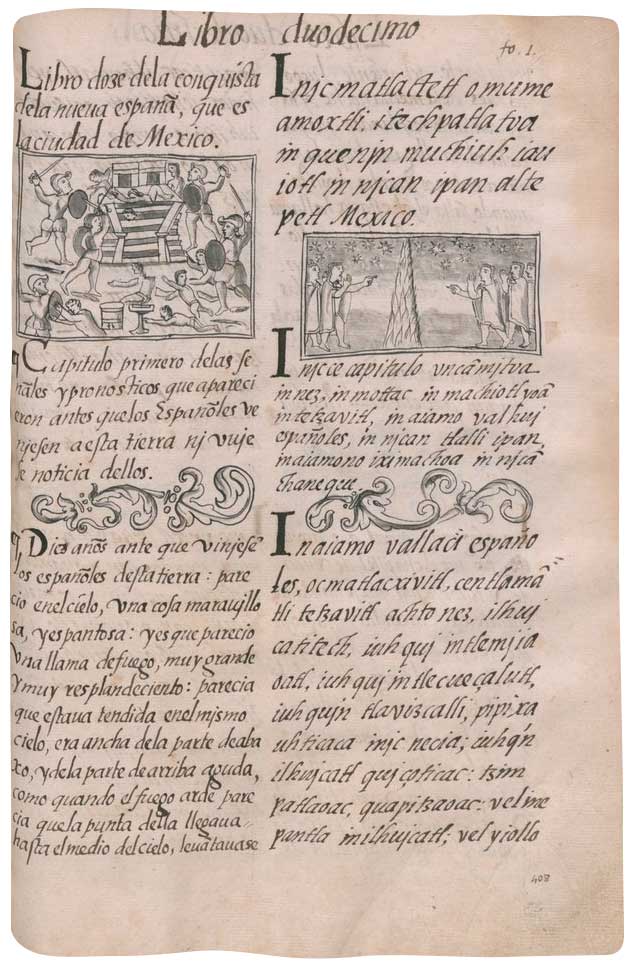 Libro duodecimo
fo. 1.
Libro doze dela conquista
dela nueva españa, que es
la ciudad de Mexico.
¶ Capitulo primero delas se
ñales y pronosticos, que apareci
eron antes quelos Españoles ve
njesen a esta tierra nj vuje
se noticia dellos.
¶ Diez años ante que vinjesẽ
los españoles desta tierra: pare
cio enel cielo, vna cosa maravjllo
sa, y espantosa: y es que parecio
vna llama de fuego, muy grande
y muy resplandeciento: parecia
que estava tendida enel mismo
cielo, era ancha dela parte de aba
xo, y dela parte de arriba aguda,
como quando el fuego arde pare
cia quela punta della llegava
hasta el medio del cielo, levãtavase
Injc matlactetl omume
amoxtli, itechpatlatoa
in quenjn muchiuh iau
iotl in njcan ipan alte
petl Mexico.
Injc ce capitulo vncã mjtva
in nez, in mottac in machiotl yoã
in tetzavitl, in aiamo valhuj
españoles, in njcan tlalli ipan,
in aiamono iximachoa in njcã
chaneque.
In aiamo vallaci españo
les, oc matlacxivitl, centlamã
tli tetzavitl achto nez, ilhuj
catitech, iuhquj in tlemjia
oatl, iuhquj in tlecueçalutl,
iuhqujn tlavizcalli, pipixa
uhticaca injc necia; iuhq̃n
ilhujcatl qujçoticac: tzim
patlaoac, quapitzaoac: vel ine
pantla in ilhujcatl; vel yiollo
408